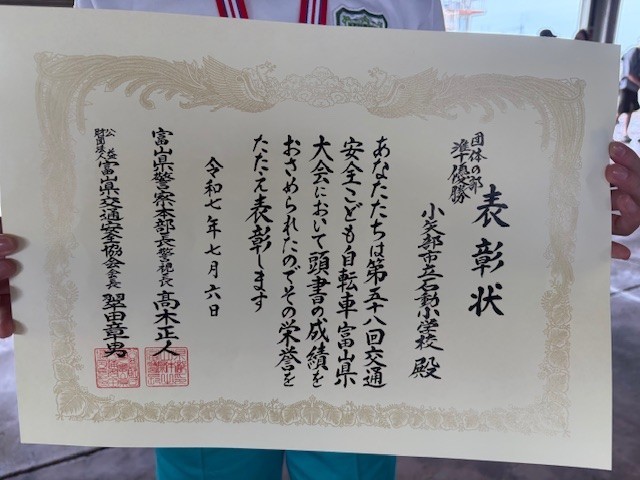 表彰状
団体の部
準優勝
小矢部市立石動小学校 殿
あなたたちは第五十八回交通
安全こども自転車富山県
大会において頭書の成績を
おさめられたのでその栄誉を
たたえ表彰します
令和七年七月六日
富山県警察本部長警視長 高木正人
公益
財団法人富山県交通安全協会会長 翠田章男